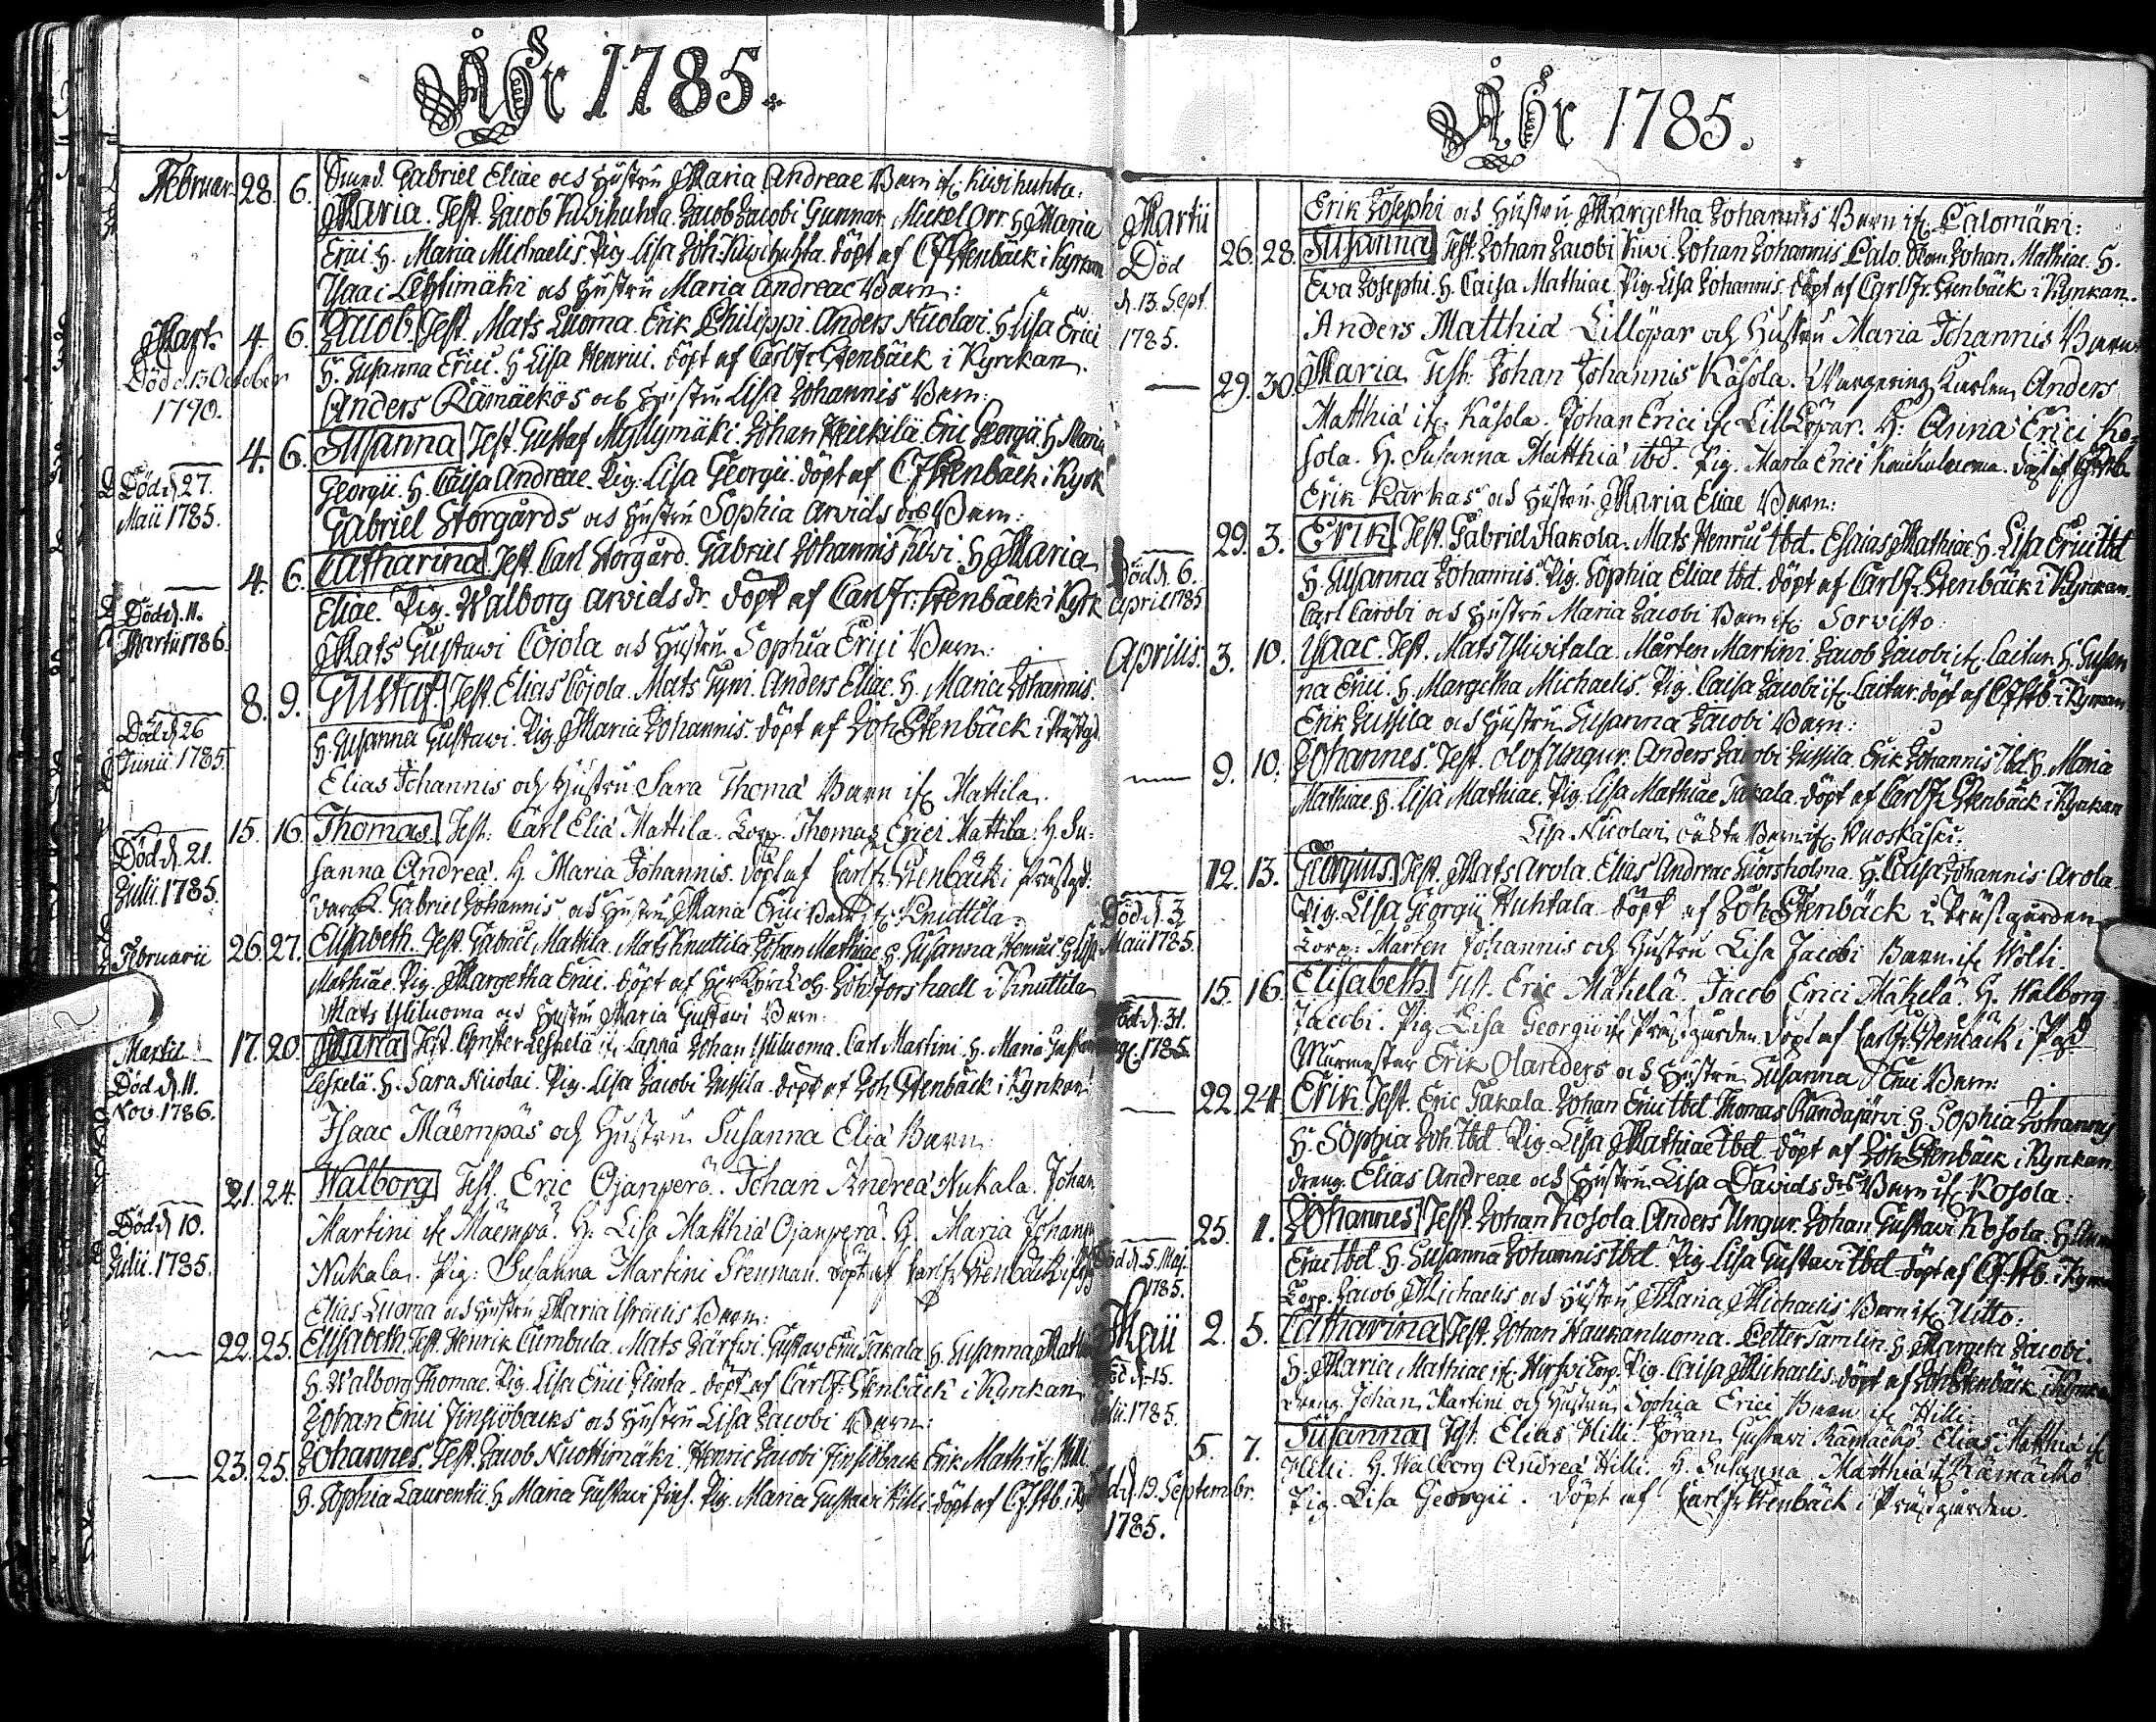 Åhr 1785.
Februar. 28. 6. Smed. Gabriel Eliae och Hustru Maria Andreae Barn if. Kivihuhta:
Maria. Test. Jacob Kivihuhta. Jacob Jacobi Gunnar Mickel Orr. H. Maria
Erici H. Maria Michaelis. Pig. Lisa Joh: Kivihuhta. döpt af CF Stenbäck i Kyrkan
Ysaac Lehtimäki och Hustru Maria Andreae Barn:
Mart. 4. 6. Jacob. Test. Mats Luoma. Erik Philippi. Anders Nicolai. H. Lisa Erici
Död d. 13 October
H. Susanna Erici. H. Lisa Henrici. döpt af Carl Fr. Stenbäck i Kyrckan.
1790.
Anders Rämäckös och Hustru Lisa Johannis Barn:
4. 6. Susanna Test. Gustaf Myllymäki. Johan Heickilä. Eric Georgii. H. Maria
Död d. 27.
Georgii. H. Caisa Andreae. Pig. Lisa Georgii. döpt af CF Stenbäck i Kyrk
Maii 1785.
Gabriel Storgårds och Hustru Sophia Arvids dr Barn:
4. 6. Catharina Test. Carl Storgård. Gabriel Johannis Kivi. H. Maria
Död d. 11.
Eliae. Pig. Walborg Arvids dr. döpt af Carl Fr: Stenbäck i Kyrk
Martii 1786.
Mats Gustavi Cojola och Hustru Sophia Erici Barn:
8. 9. Gustaf. Test. Elias Cojola. Mats Tyni. Anders Eliae. H. Maria Johannis.
Död d. 26
H. Susanna Gustavi. Pig. Maria Johannis. döpt af Joh Stenbäck i Prästgd.
Junii 1785.
Elias Johannis och Hustru Sara Thomä Barn if. Mattila.
15. 16. Thomas. Test: Carl Eliä Mattila. Torp. Thomas Erici Mattila. H. Su-
Död d. 21.
sanna Andreä. H. Maria Johannis. döpt af Carl Fr. Stenbäck i Prästgd:
Julii. 1785.
Gabriel Johannis och Hustru Maria Erici Barn if. Knuttila:
Februarii 26. 27. Elisabeth. Test. Gabriel Mattila. Mats Knuttila Johan Mathiae. H. Susanna Henrici. H. Lisa
Mathiae. Pig. Margetha Erici. döpt af Joh Forshaell i Knuttila
Mats Yliluoma och Hustru Maria Gustavi Barn:
Martii 17. 20. Maria Test. Christer Leskelä if. Lappå Johan Yliluoma. Carl Martini. H. Maria
Död d. 11.
Leskelä. H. Sara Nicolai. Pig. Lisa Jacobi Jussila. döpt af Joh Stenbäck i Kyrkan
Nov. 1786.
Isaac Mäempäs och Hustru Susanna Eliä Barn
21. 24. Walborg Test. Eric Ojanperä. Johan Andreä Nukala. Johan
Död d 10.
Martini if. Mäempä. H: Lisa Matthiä Ojanperä. H. Maria Johan
Julii. 1785.
Nukala. Pig: Susanna Martini Stenman. döpt af Carl Fr Stenbäck i
Elias Luoma och Hustru Maria Israelis Barn:
22. 25. Elisabeth. Test. Henrik Cumbula. Mats Järfvi. Gustav Erici Takala H. Susanna
H. Walborg Thomae. Pig. Lisa Erici Flinta. döpt af Carl Fr: Stenbäck i Kyrkan
Johan Erici Finsiöbacks och Hustru Lisa Jacobi Barn:
23. 25. Johannes. Test. Jacob Nuottimäki. Henric Jacobi Finsiöback Erik Math. if. Hilli
H. Sophia Laurentii H Maria Gustavi Fins. Pig. Maria Gustavi Hilli döpt af CF Stb. i
Åhr 1785.
Martii Erik Josephi och Hustru Margetha Johannis Barn if. Palomäki:
Död 26. 28. Susanna Test. Johan Jacobi Kivi. Johan Johannis Palo. Johan Mathiae. H.
d. 13. Sept.
Eva Josephi. H. Caisa Mathiae. Pig. Lisa Johannis. döpt af Carl Fr. Stenbäck i Kyrkan.
1785.
Anders Matthiä Lillöpar och Hustru Maria Johannis Barn
29. 30. Maria Test: Johan Johannis Kåsola. Anders
Matthiä if. Kåsola. Johan Erici if. Lill Löpar. H: Anna Erici Ko-
sola. H. Susanna Matthiä ibd. Pig. Maria Erici
Erik Karkas och Hustru Maria Eliae Barn:
29. 3. Erik Test. Gabriel Hakola. Mats Henrici ibd. Esaias Mathiae H. Lisa Erici ibd
Död d. 6.
H. Susanna Johannis. Pig. Sophia Eliae ibd. döpt af Carl Fr Stenbäck i Kyrkan.
April 1785
Carl Carobi och Hustru Maria Jacobi Barn if. Sorvisto:
Aprilis. 3. 10. Ysaac. Test. Mats Yliviitala. Mårten Martini. Jacob Jacobi if. Laitur. H. Susan
na Erici. H. Margetha Michaelis. Pig. Caisa Jacobi if. Laitur. döpt af CF Stb. i Kyrkan
Erik Jussila och Hustru Susanna Jacobi Barn:
9. 10. Johannes. Test. Olof Ungur. Anders Jacobi Jussila. Erik Johannis Ibd. H. Maria
Mathiae. H. Lisa Mathiae. Pig. Lisa Mathiae Takala. döpt af Carl Fr Stenbäck i Kyrkan
Lisa Nicolai oächta Barn if. Ruoskaski:
12. 13. Georgius. Test. Mats Arola. Elias Andreae H. Caisa Johannis Arola.
Död d. 3
Pig. Lisa Georgii Huhtala döpt af Joh Stenbäck i Prästgården
Maii 1785.
Torp: Mårten Johannis och Hustru Lisa Jacobi Barn if. Wolti.
15. 16. Elisabeth. Test. Eric Mäkelä. Jacob Erici Mäkelä. H. Walborg
Död d. 31.
Jacobi. Pig Lisa Georgii if. Prästgården döpt af Carl Fr Stenbäck i Pgd
1785.
Murmestar Erik Olanders och Hustru Susanna Erici Barn:
22. 24. Erik. Test. Eric Takala. Johan Erici ibd. Thomas Randajärvi. H. Sophia Johannis
H. Sophia Joh. ibd. Pig. Lisa Mathiae ibd. döpt af Joh Stenbäck i Kyrkan.
dreng. Elias Andreae och Hustru Lisa Davids dr Barn if. Kosola:
25. 1. Johannes Test. Johan Kosola. Anders Ungur. Johan Gustavi Kosola.
Död d. 5. Maj.
Erici ibd. H. Susanna Johannis ibd. Pig. Lisa Gustavi ibd. döpt af CF Stb. i
1785.
Torp. Jacob Michaelis och Hustru Maria Michaelis Barn if. Uitto:
Maii 2. 5. Catharina Test. Johan Haukanluoma. Petter Tamlin. H. Margeta Jacobi.
Död d. 15.
H. Maria Mathiae if. Pig. Caisa Michaelis. döpt af Joh Stenbäck i
Julii. 1785.
Dreng Johan Martini och Hustru Sophia Erici Barn if. Hilli
5. 7. Susanna Test. Elias Hilli. Jöran Gustavi Rämäckö. Elias Matthiä if
Hilli. H. Walborg Andreä Hilli. H. Susanna Matthiä if Rämäckö
Död d. 19. Septembr.
Pig. Lisa Georgii. döpt af Carl Fr Stenbäck i Prästgården.
1785.